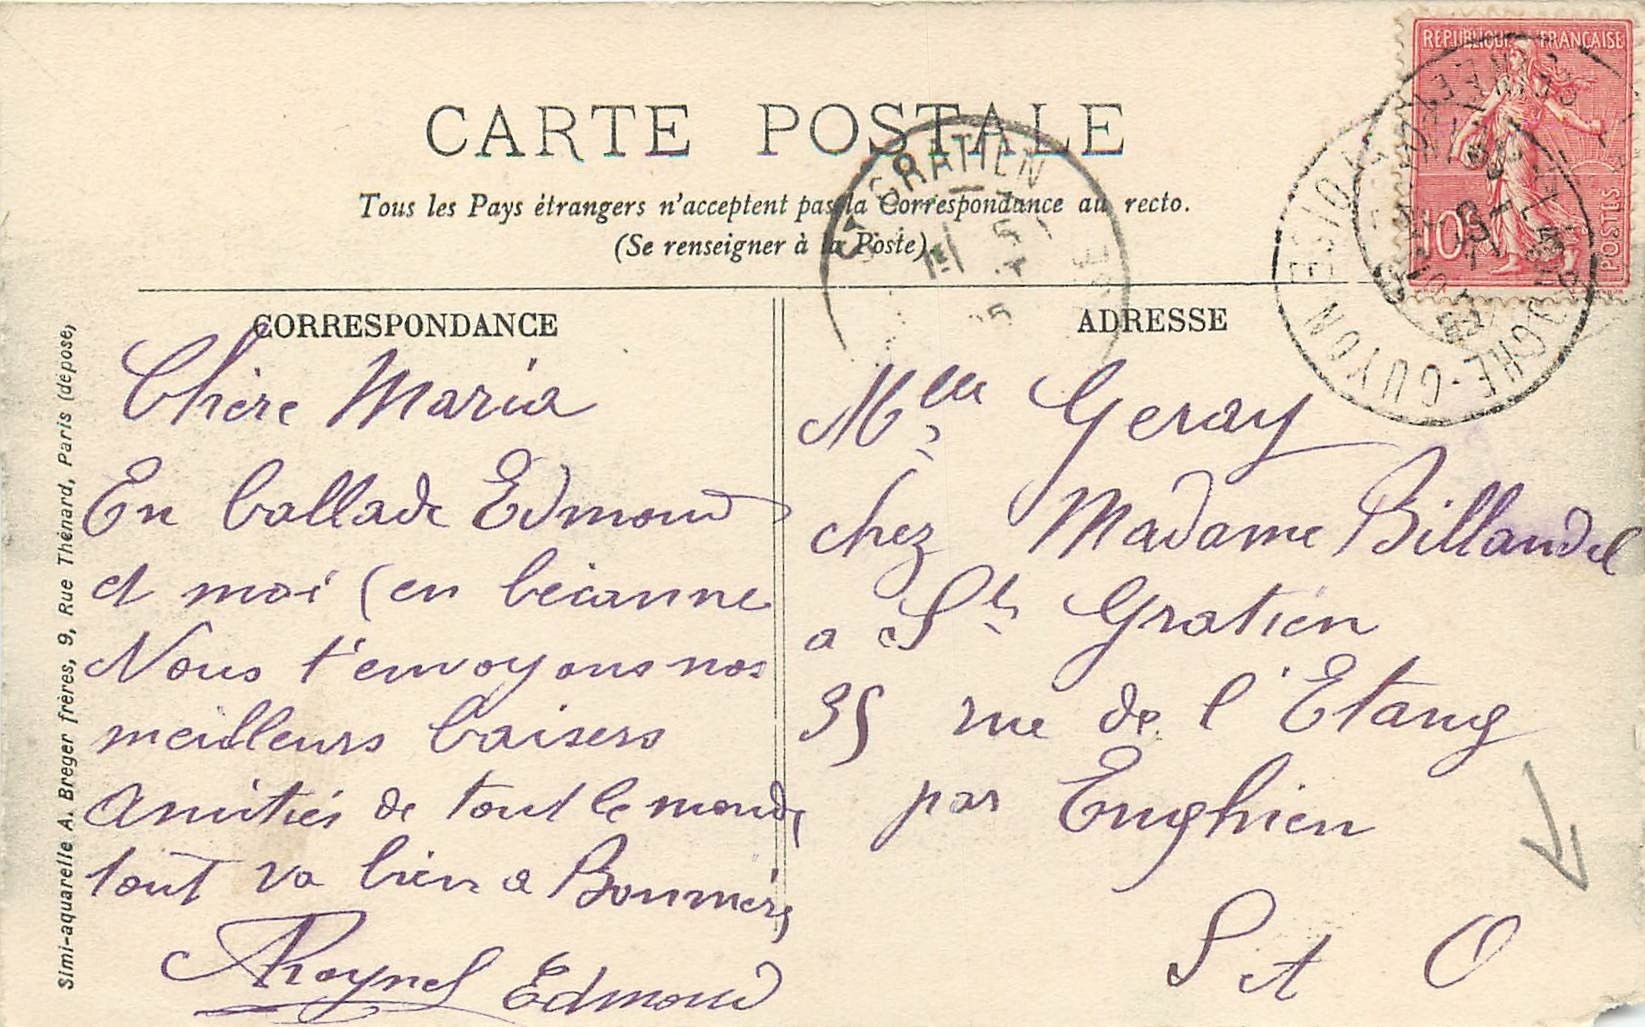 CARTE POSTALE
Tous les Pays étrangers n'acceptent pas la Correspondance au recto.
(Se renseigner à la Poste).
REPUBLIQUE FRANÇAISE
10
POSTES
ST GRATIEN
GUYON
CORRESPONDANCE
Chère Maria
En ballade Edmond
et moi (en bécanne
Nous t'envoyons nos
meilleurs baisers
Amitiés de tout le monde
tout va bien a Bonnières
Edmond
ADRESSE
Melle Geray
chez Madame Billaudel
a St Gratien
35 rue de l'Etang
par Enghien
S et O
Simi-aquarelle A. Breger frères, 9, Rue Thénard, Paris (déposé)